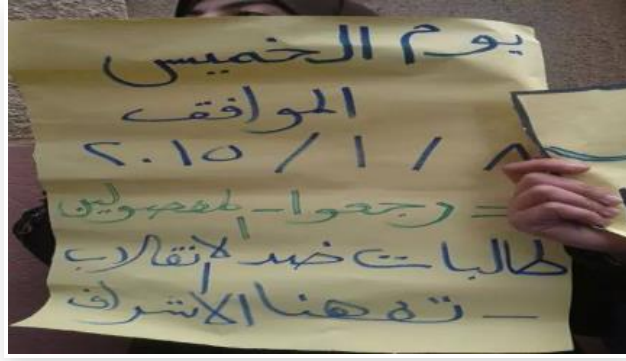 يوم الخميس
الموافق
٨ / ١ / ٢٠١٥
= رجعوا - المفصولين
طالبات ضد الانقلاب
- تفهنا الاشراف